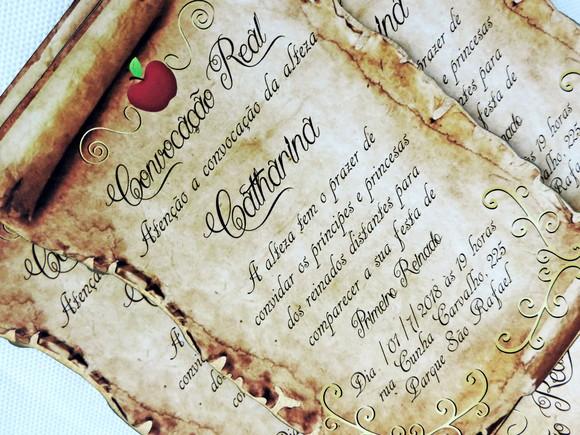 Convocação Real
Atenção a convocação da alteza
Catharina
A alteza tem o prazer de
convidar os príncipes e princesas
dos reinados distantes para
comparecer a sua festa de
Primeiro Reinado
Dia /01/7/2018 às 19 horas
rua Cunha Carvalho, 225
Parque São Rafael
prazer de
e princesas
para
festa de
19 horas
225
Atenção